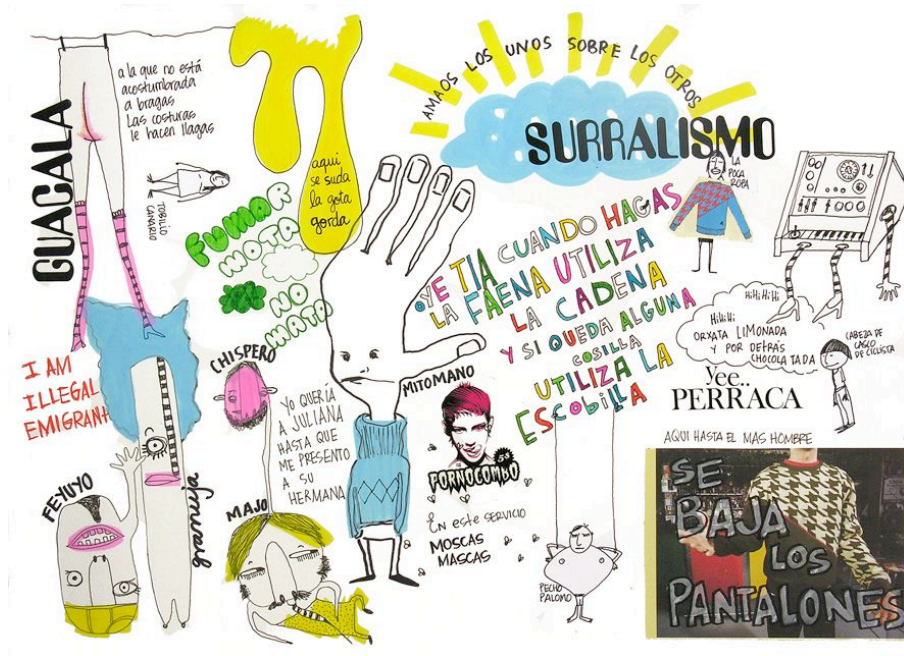 GUACALA
a la que no está
acostumbrada
a bragas
Las costuras
le hacen llagas
TOBILLO
CANARIO
aqui
se suda
la gota
gorda
FUMAR
MOTA
NO
MATA
AMAOS LOS UNOS SOBRE LOS OTROS
SURRALISMO
LA
POCA
ROBA
OYE TIA CUANDO HAGAS
LA FAENA UTILIZA
LA CADENA
Y SI QUEDA ALGUNA
COSILLA
UTILIZA LA
ESCOBILLA
HiHiHiHi
HiHiHi
ORXATA LIMONADA
Y POR DETRÁS
CHOCOLATADA
CABEZA DE
CASCO
DE CICLISTA
yee..
PERRACA
I AM
ILLEGAL
EMIGRANT
CHISPERO
YO QUERÍA
A JULIANA
HASTA QUE
ME PRESENTO
A SU
HERMANA
MITOMANO
PORNOCOMBO
En este SERVICIO
MOSCAS
MASCAS
FEYUYO
MAJO
PECHO
PALOMO
AQUI HASTA EL MAS HOMBRE
SE
BAJA
LOS
PANTALONES